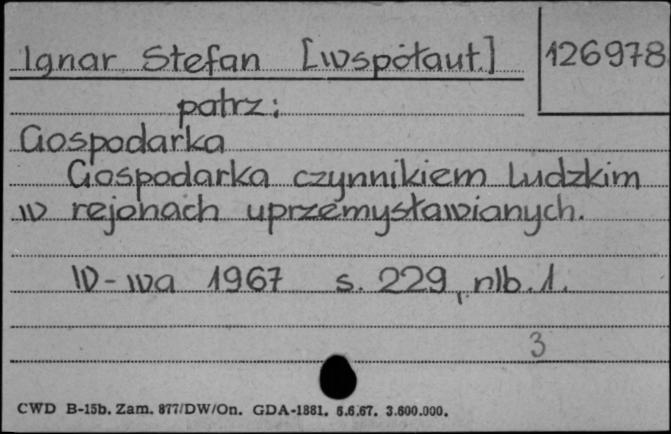 Ignar Stefan [współaut.] 126978
patrz:
Gospodarka
Gospodarka czynnikiem ludzkim
w rejonach uprzemysławianych.
W-wa 1967 s. 229, nlb. 1.
3
CWD B-15b. Zam. 877/DW/On. GDA-1881. 6.6.67. 3.600.000.